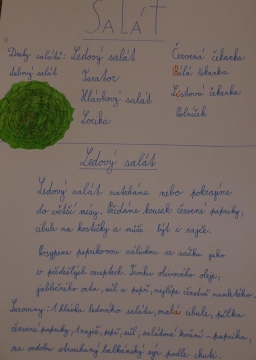 SALÁT
Druhy salátů: Ledový salát
Červená čekanka
dubový salát
Bílá čekanka
Listová čekanka
Hlávkový salát
Polníček
Locika
Ledový salát
Ledový salát natrháme nebo pokrájíme
do větší mísy. Přidáme kousek červené papriky,
cibule na kostičky a může být i rajče.
Posypeme paprikovou zálivkou ze sáčku jako
v předešlých receptech. Trochu olivového oleje,
jablečného octa, sůl a pepř, nejlépe čerstvě namletého.
Suroviny: 1 hlávka ledového salátu, malá cibule, půlka
červené papriky, 1 rajče, pepř, sůl, salátové koření - paprika,
na ozdobu strouhaný balkánský sýr podle chuti.